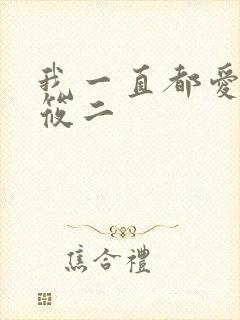 我一直都愛
筱二
焦合禮